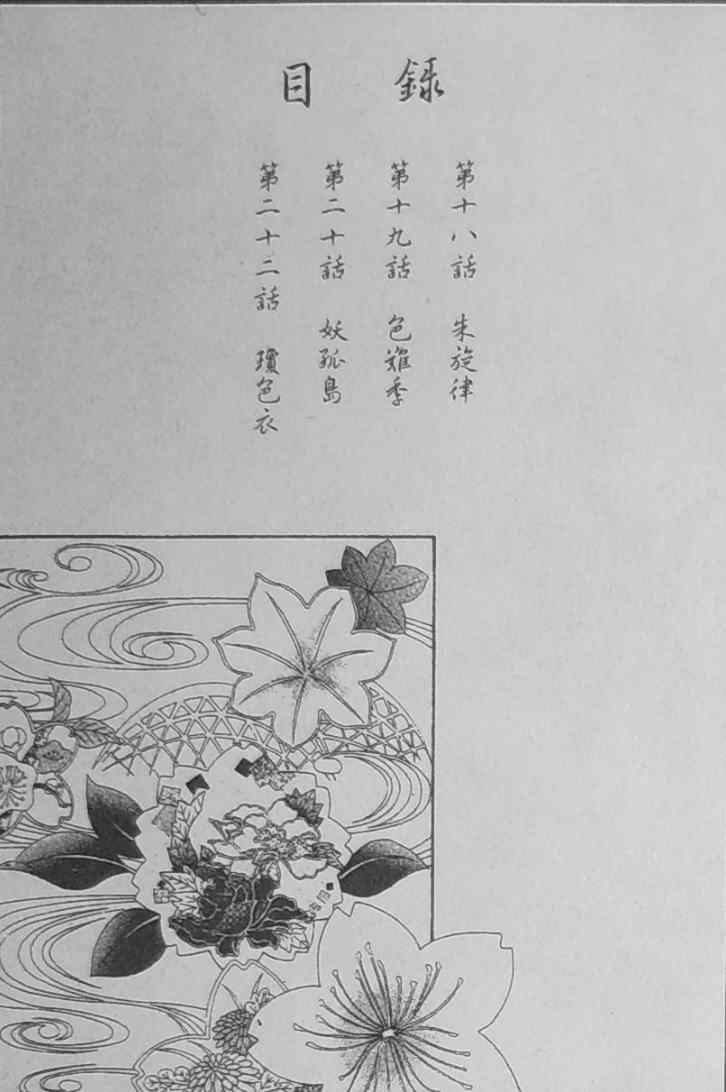 目 録
第十八話 朱旋律
第十九話 色季
第二十話 妖孤島
第二十二話 瓊色衣